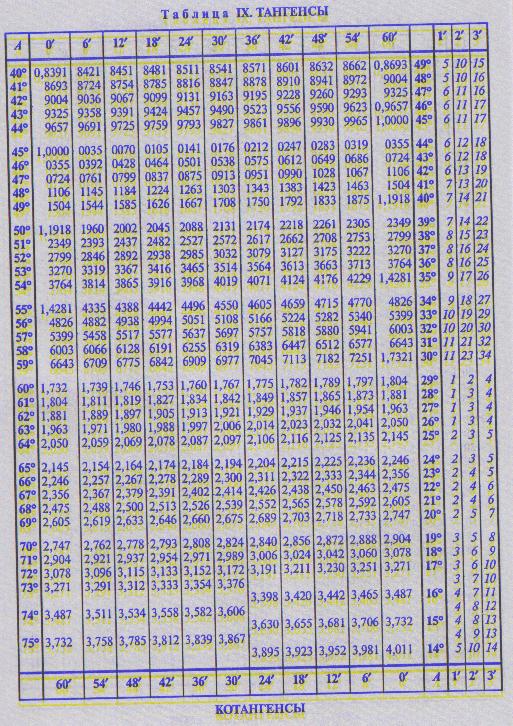 Таблица IX. ТАНГЕНСЫ
A 0′ 6′ 12′ 18′ 24′ 30′ 36′ 42′ 48′ 54′ 60′ 1′ 2′ 3′
40° 0,8391 8421 8451 8481 8511 8541 8571 8601 8632 8662 0,8693 49° 5 10 15
41° 8693 8724 8754 8785 8816 8847 8878 8910 8941 8972 9004 48° 5 10 16
42° 9004 9036 9067 9099 9131 9163 9195 9228 9260 9293 9325 47° 6 11 16
43° 9325 9358 9391 9424 9457 9490 9523 9556 9590 9623 0,9657 46° 6 11 17
44° 9657 9691 9725 9759 9793 9827 9861 9896 9930 9965 1,0000 45° 6 11 17
45° 1,0000 0035 0070 0105 0141 0176 0212 0247 0283 0319 0355 44° 6 12 18
46° 0355 0392 0428 0464 0501 0538 0575 0612 0649 0686 0724 43° 6 12 18
47° 0724 0761 0799 0837 0875 0913 0951 0990 1028 1067 1106 42° 6 13 19
48° 1106 1145 1184 1224 1263 1303 1343 1383 1423 1463 1504 41° 7 13 20
49° 1504 1544 1585 1626 1667 1708 1750 1792 1833 1875 1,1918 40° 7 14 21
50° 1,1918 1960 2002 2045 2088 2131 2174 2218 2261 2305 2349 39° 7 14 22
51° 2349 2393 2437 2482 2527 2572 2617 2662 2708 2753 2799 38° 8 15 23
52° 2799 2846 2892 2938 2985 3032 3079 3127 3175 3222 3270 37° 8 16 24
53° 3270 3319 3367 3416 3465 3514 3564 3613 3663 3713 3764 36° 8 16 25
54° 3764 3814 3865 3916 3968 4019 4071 4124 4176 4229 1,4281 35° 9 17 26
55° 1,4281 4335 4388 4442 4496 4550 4605 4659 4715 4770 4826 34° 9 18 27
56° 4826 4882 4938 4994 5051 5108 5166 5224 5282 5340 5399 33° 10 19 29
57° 5399 5458 5517 5577 5637 5697 5757 5818 5880 5941 6003 32° 10 20 30
58° 6003 6066 6128 6191 6255 6319 6383 6447 6512 6577 6643 31° 11 21 32
59° 6643 6709 6775 6842 6909 6977 7045 7113 7182 7251 1,7321 30° 11 23 34
60° 1,732 1,739 1,746 1,753 1,760 1,767 1,775 1,782 1,789 1,797 1,804 29° 1 2 4
61° 1,804 1,811 1,819 1,827 1,834 1,842 1,849 1,857 1,865 1,873 1,881 28° 1 3 4
62° 1,881 1,889 1,897 1,905 1,913 1,921 1,929 1,937 1,946 1,954 1,963 27° 1 3 4
63° 1,963 1,971 1,980 1,988 1,997 2,006 2,014 2,023 2,032 2,041 2,050 26° 1 3 4
64° 2,050 2,059 2,069 2,078 2,087 2,097 2,106 2,116 2,125 2,135 2,145 25° 2 3 5
65° 2,145 2,154 2,164 2,174 2,184 2,194 2,204 2,215 2,225 2,236 2,246 24° 2 3 5
66° 2,246 2,257 2,267 2,278 2,289 2,300 2,311 2,322 2,333 2,344 2,356 23° 2 4 5
67° 2,356 2,367 2,379 2,391 2,402 2,414 2,426 2,438 2,450 2,463 2,475 22° 2 4 6
68° 2,475 2,488 2,500 2,513 2,526 2,539 2,552 2,565 2,578 2,592 2,605 21° 2 4 6
69° 2,605 2,619 2,633 2,646 2,660 2,675 2,689 2,703 2,718 2,733 2,747 20° 2 5 7
70° 2,747 2,762 2,778 2,793 2,808 2,824 2,840 2,856 2,872 2,888 2,904 19° 3 5 8
71° 2,904 2,921 2,937 2,954 2,971 2,989 3,006 3,024 3,042 3,060 3,078 18° 3 6 9
72° 3,078 3,096 3,115 3,133 3,152 3,172 3,191 3,211 3,230 3,251 3,271 17° 3 6 10
73° 3,271 3,291 3,312 3,333 3,354 3,376 3 7 10
3,398 3,420 3,442 3,465 3,487 16° 4 7 11
74° 3,487 3,511 3,534 3,558 3,582 3,606 4 8 12
3,630 3,655 3,681 3,706 3,732 15° 4 8 13
75° 3,732 3,758 3,785 3,812 3,839 3,867 4 9 13
3,895 3,923 3,952 3,981 4,011 14° 5 10 14
60′ 54′ 48′ 42′ 36′ 30′ 24′ 18′ 12′ 6′ 0′ A 1′ 2′ 3′
КОТАНГЕНСЫ